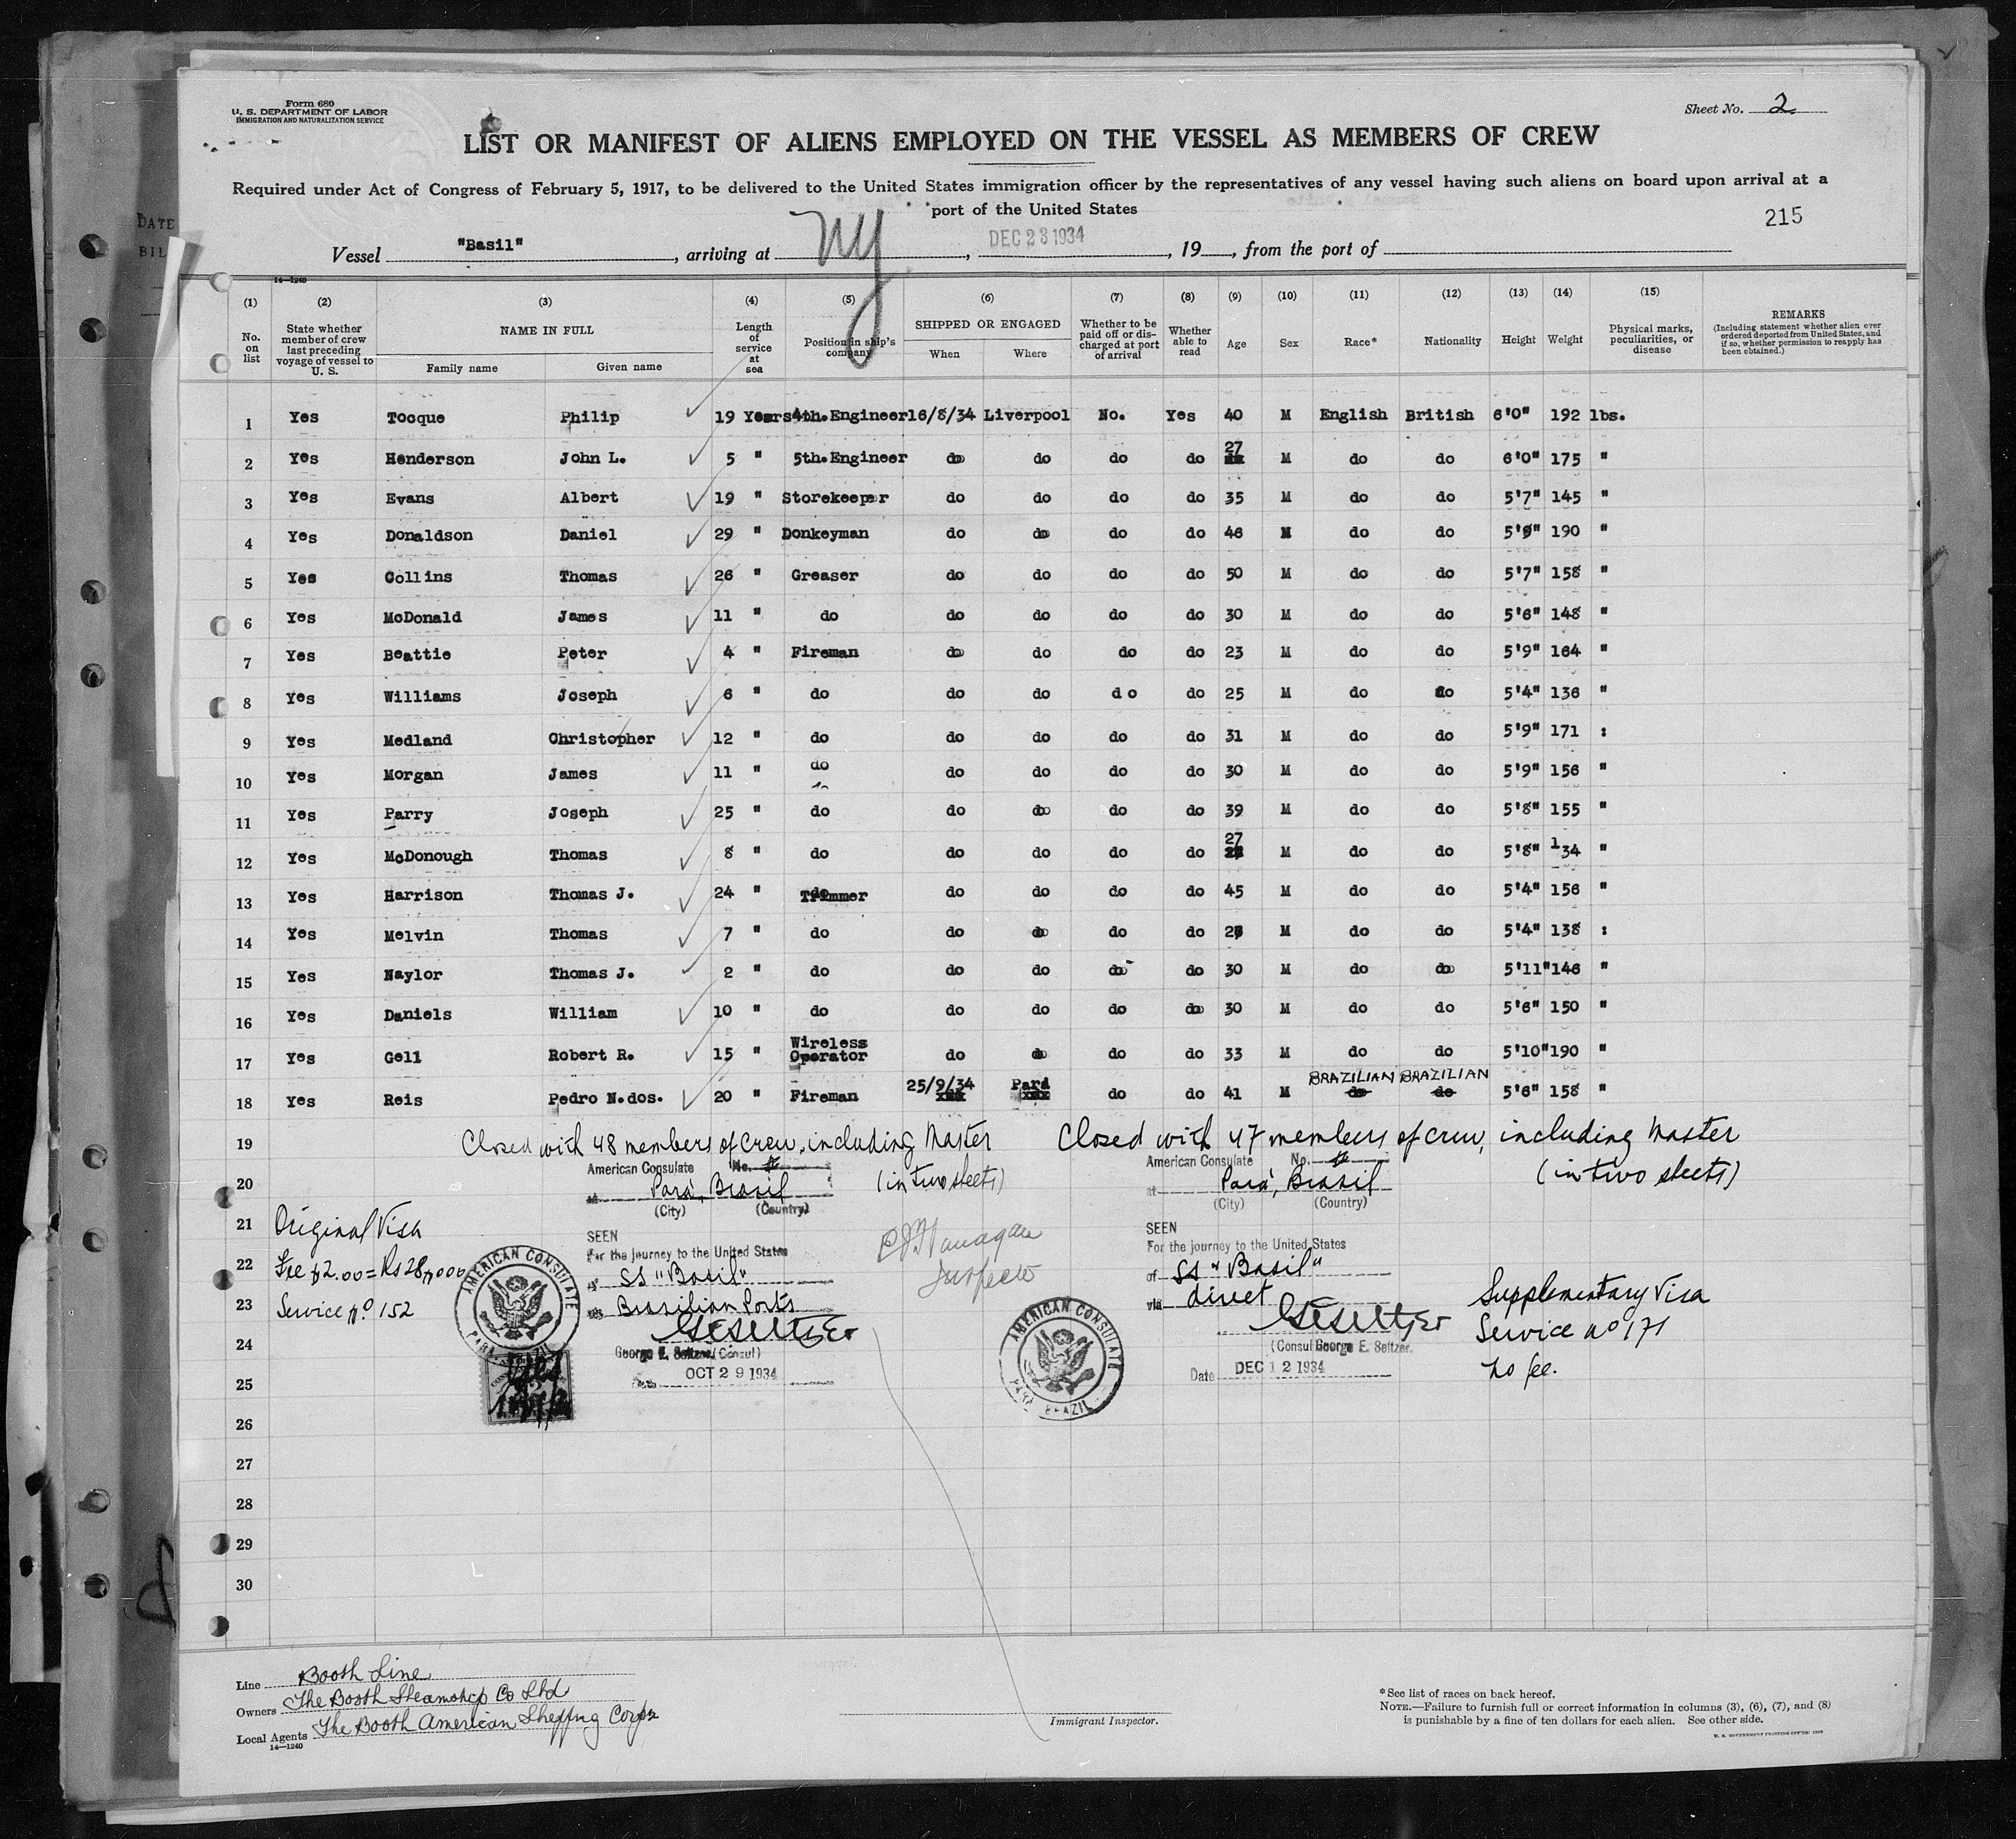 Form 680
U. S. DEPARTMENT OF LABOR
IMMIGRATION AND NATURALIZATION SERVICE
Sheet No. 2
LIST OR MANIFEST OF ALIENS EMPLOYED ON THE VESSEL AS MEMBERS OF CREW
Required under Act of Congress of February 5, 1917, to be delivered to the United States immigration officer by the representatives of any vessel having such aliens on board upon arrival at a
port of the United States
215
DATE
BIL
Vessel "Basil", arriving at NY, DEC 23 1934, 19, from the port of
14—1240
(1) (2) (3) (4) (5) (6) (7) (8) (9) (10) (11) (12) (13) (14) (15)
No. on list State whether member of crew last preceding voyage of vessel to U. S. NAME IN FULL Family name Given name Length of service at sea Position in ship's company SHIPPED OR ENGAGED When Where Whether to be paid off or discharged at port of arrival Whether able to read Age Sex Race* Nationality Height Weight Physical marks, peculiarities, or disease REMARKS (Including statement whether alien ever ordered deported from United States, and if so, whether permission to reapply has been obtained.)
1 Yes Tocque Philip 19 Years 4th. Engineer 16/8/34 Liverpool No. Yes 40 M English British 6'0" 192 lbs.
2 Yes Henderson John L. 5 " 5th. Engineer do do do do 27 M do do 6'0" 175 "
3 Yes Evans Albert 19 " Storekeeper do do do do 35 M do do 5'7" 145 "
4 Yes Donaldson Daniel 29 " Donkeyman do do do do 46 M do do 5'9" 190 "
5 Yes Collins Thomas 26 " Greaser do do do do 50 M do do 5'7" 158 "
6 Yes McDonald James 11 " do do do do do 30 M do do 5'6" 148 "
7 Yes Beattie Peter 4 " Fireman do do do do 23 M do do 5'9" 164 "
8 Yes Williams Joseph 6 " do do do do do 25 M do do 5'4" 136 "
9 Yes Medland Christopher 12 " do do do do do 31 M do do 5'9" 171 :
10 Yes Morgan James 11 " do do do do do 30 M do do 5'9" 156 "
11 Yes Parry Joseph 25 " do do do do do 39 M do do 5'8" 155 "
12 Yes McDonough Thomas 8 " do do do do do 27 M do do 5'8" 134 "
13 Yes Harrison Thomas J. 24 " Trimmer do do do do 45 M do do 5'4" 156 "
14 Yes Melvin Thomas 7 " do do do do do M do do 5'4" 138 :
15 Yes Naylor Thomas J. 2 " do do do do do 30 M do do 5'11" 146 "
16 Yes Daniels William 10 " do do do do do 30 M do do 5'6" 150 "
17 Yes Gell Robert R. 15 " Wireless Operator do do do do 33 M do do 5'10" 190 "
18 Yes Reis Pedro N. dos. 20 " Fireman 25/9/34 Pará do do 41 M BRAZILIAN BRAZILIAN 5'6" 158 "
19 Closed with 48 members of crew, including Master Closed with 47 members of crew, including Master
American Consulate No. (in two sheets) American Consulate No. (in two sheets)
20 at Pará, Brasil at Pará, Brasil
(City) (Country) (City) (Country)
21 Original Visa SEEN SEEN
For the journey to the United States For the journey to the United States
22 Fee $2.00 = Rs 28$000 by SS "Basil" of SS "Basil"
23 Service No. 152 via Brazilian Ports via direct Supplementary Visa
24 GESeltzer GESeltzer Service No 171
George E. Seltzer (Consul) (Consul George E. Seltzer.
25 Date OCT 29 1934 Date DEC 12 1934 no fee.
Inspector
AMERICAN CONSULATE PARA, BRAZIL
AMERICAN CONSULATE PARA, BRAZIL
26
27
28
29
30
Line Booth Line
Owners The Booth Steamship Co Ltd
Local Agents The Booth American Shipping Corpn
14—1240
Immigrant Inspector.
*See list of races on back hereof.
NOTE.—Failure to furnish full or correct information in columns (3), (6), (7), and (8)
is punishable by a fine of ten dollars for each alien. See other side.